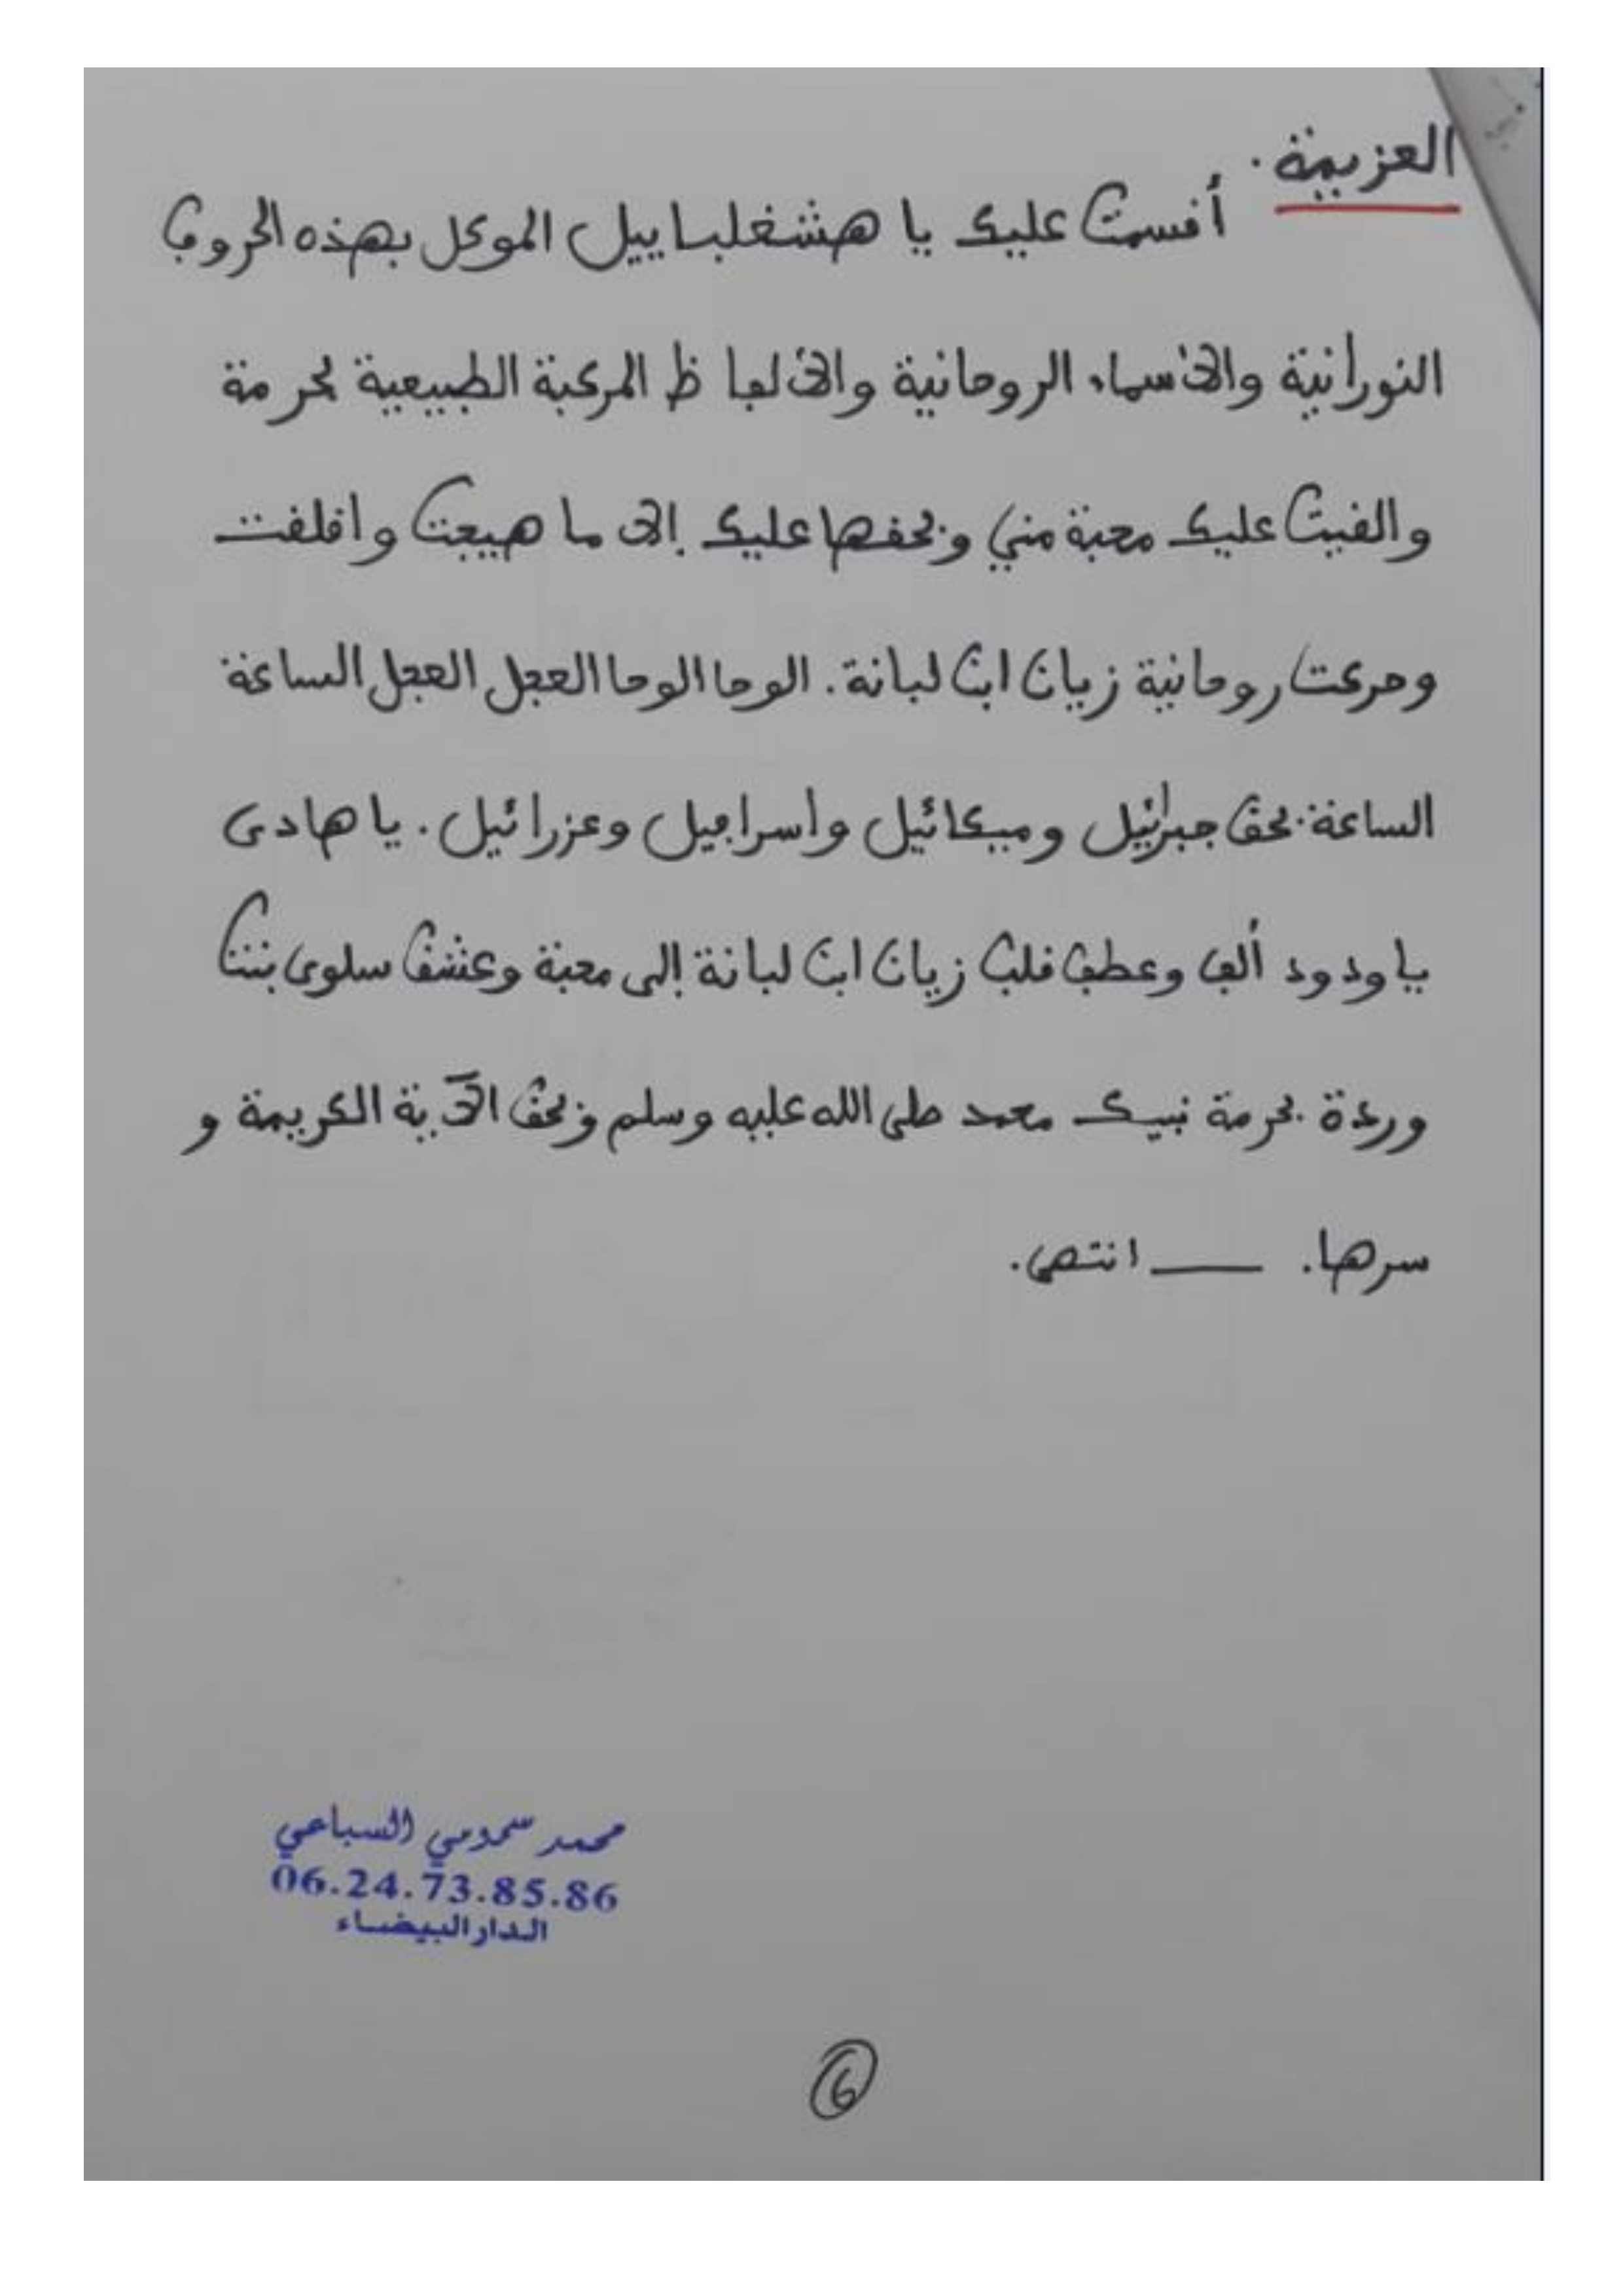 العزيمة.
أقسمت عليك يا هشغلباييل الموكل بهذه الحروف
النورانية والأسماء الروحانية والألفاظ المركبة الطبيعية بحرمة
والقيت عليك محبة مني وبحقها عليك إلى ما هيجت واقلقت
وحركت روحانية زيان ابن لبانة. الوحا الوحا العجل العجل الساعة
الساعة بحق جبرائيل وميكائيل واسرافيل وعزرائيل. يا هادى
يا ودود ألف وعطف قلب زيان ابن لبانة إلى محبة وعشق سلوى بنت
وردة بحرمة نبيك محمد صلى الله عليه وسلم وبحق الآية الكريمة و
سرها. ـــــ انتهى.
محمد سمومي السباعي
06.24.73.85.86
الدار البيضاء
6